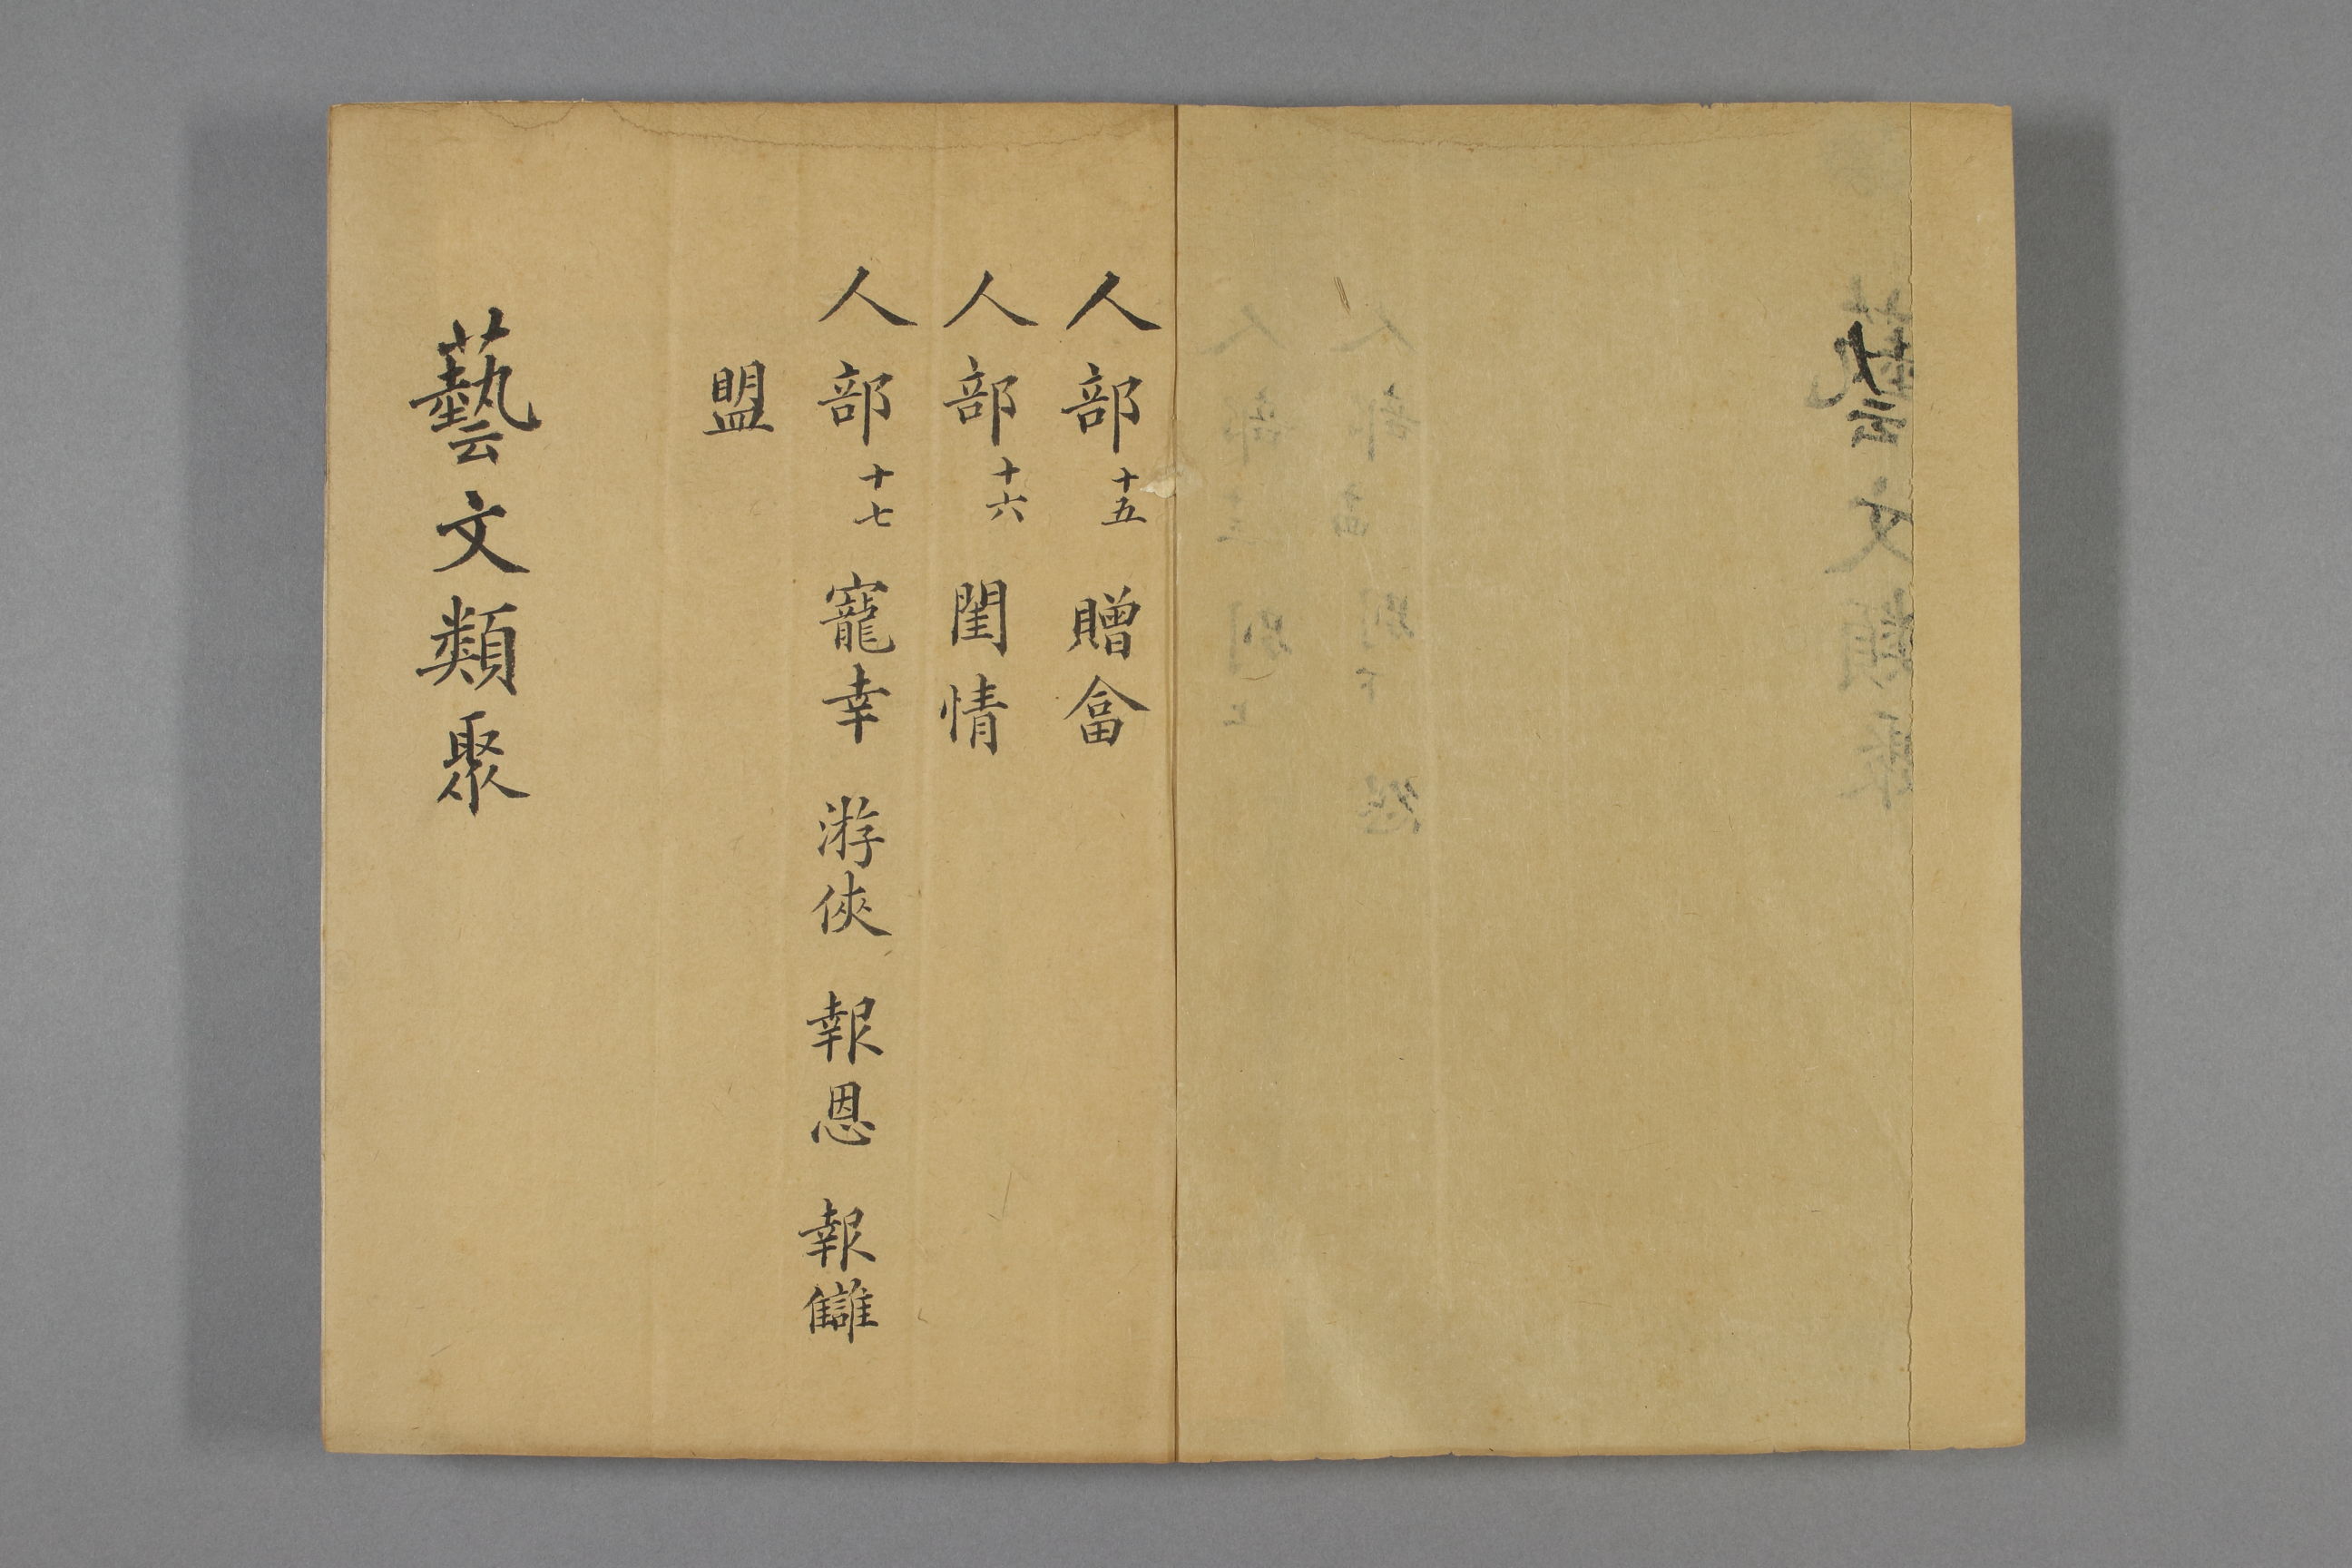 人部十五 贈畣
人部十六 閨情
人部十七 寵幸 游俠 報恩 報讎
盟
藝文類聚